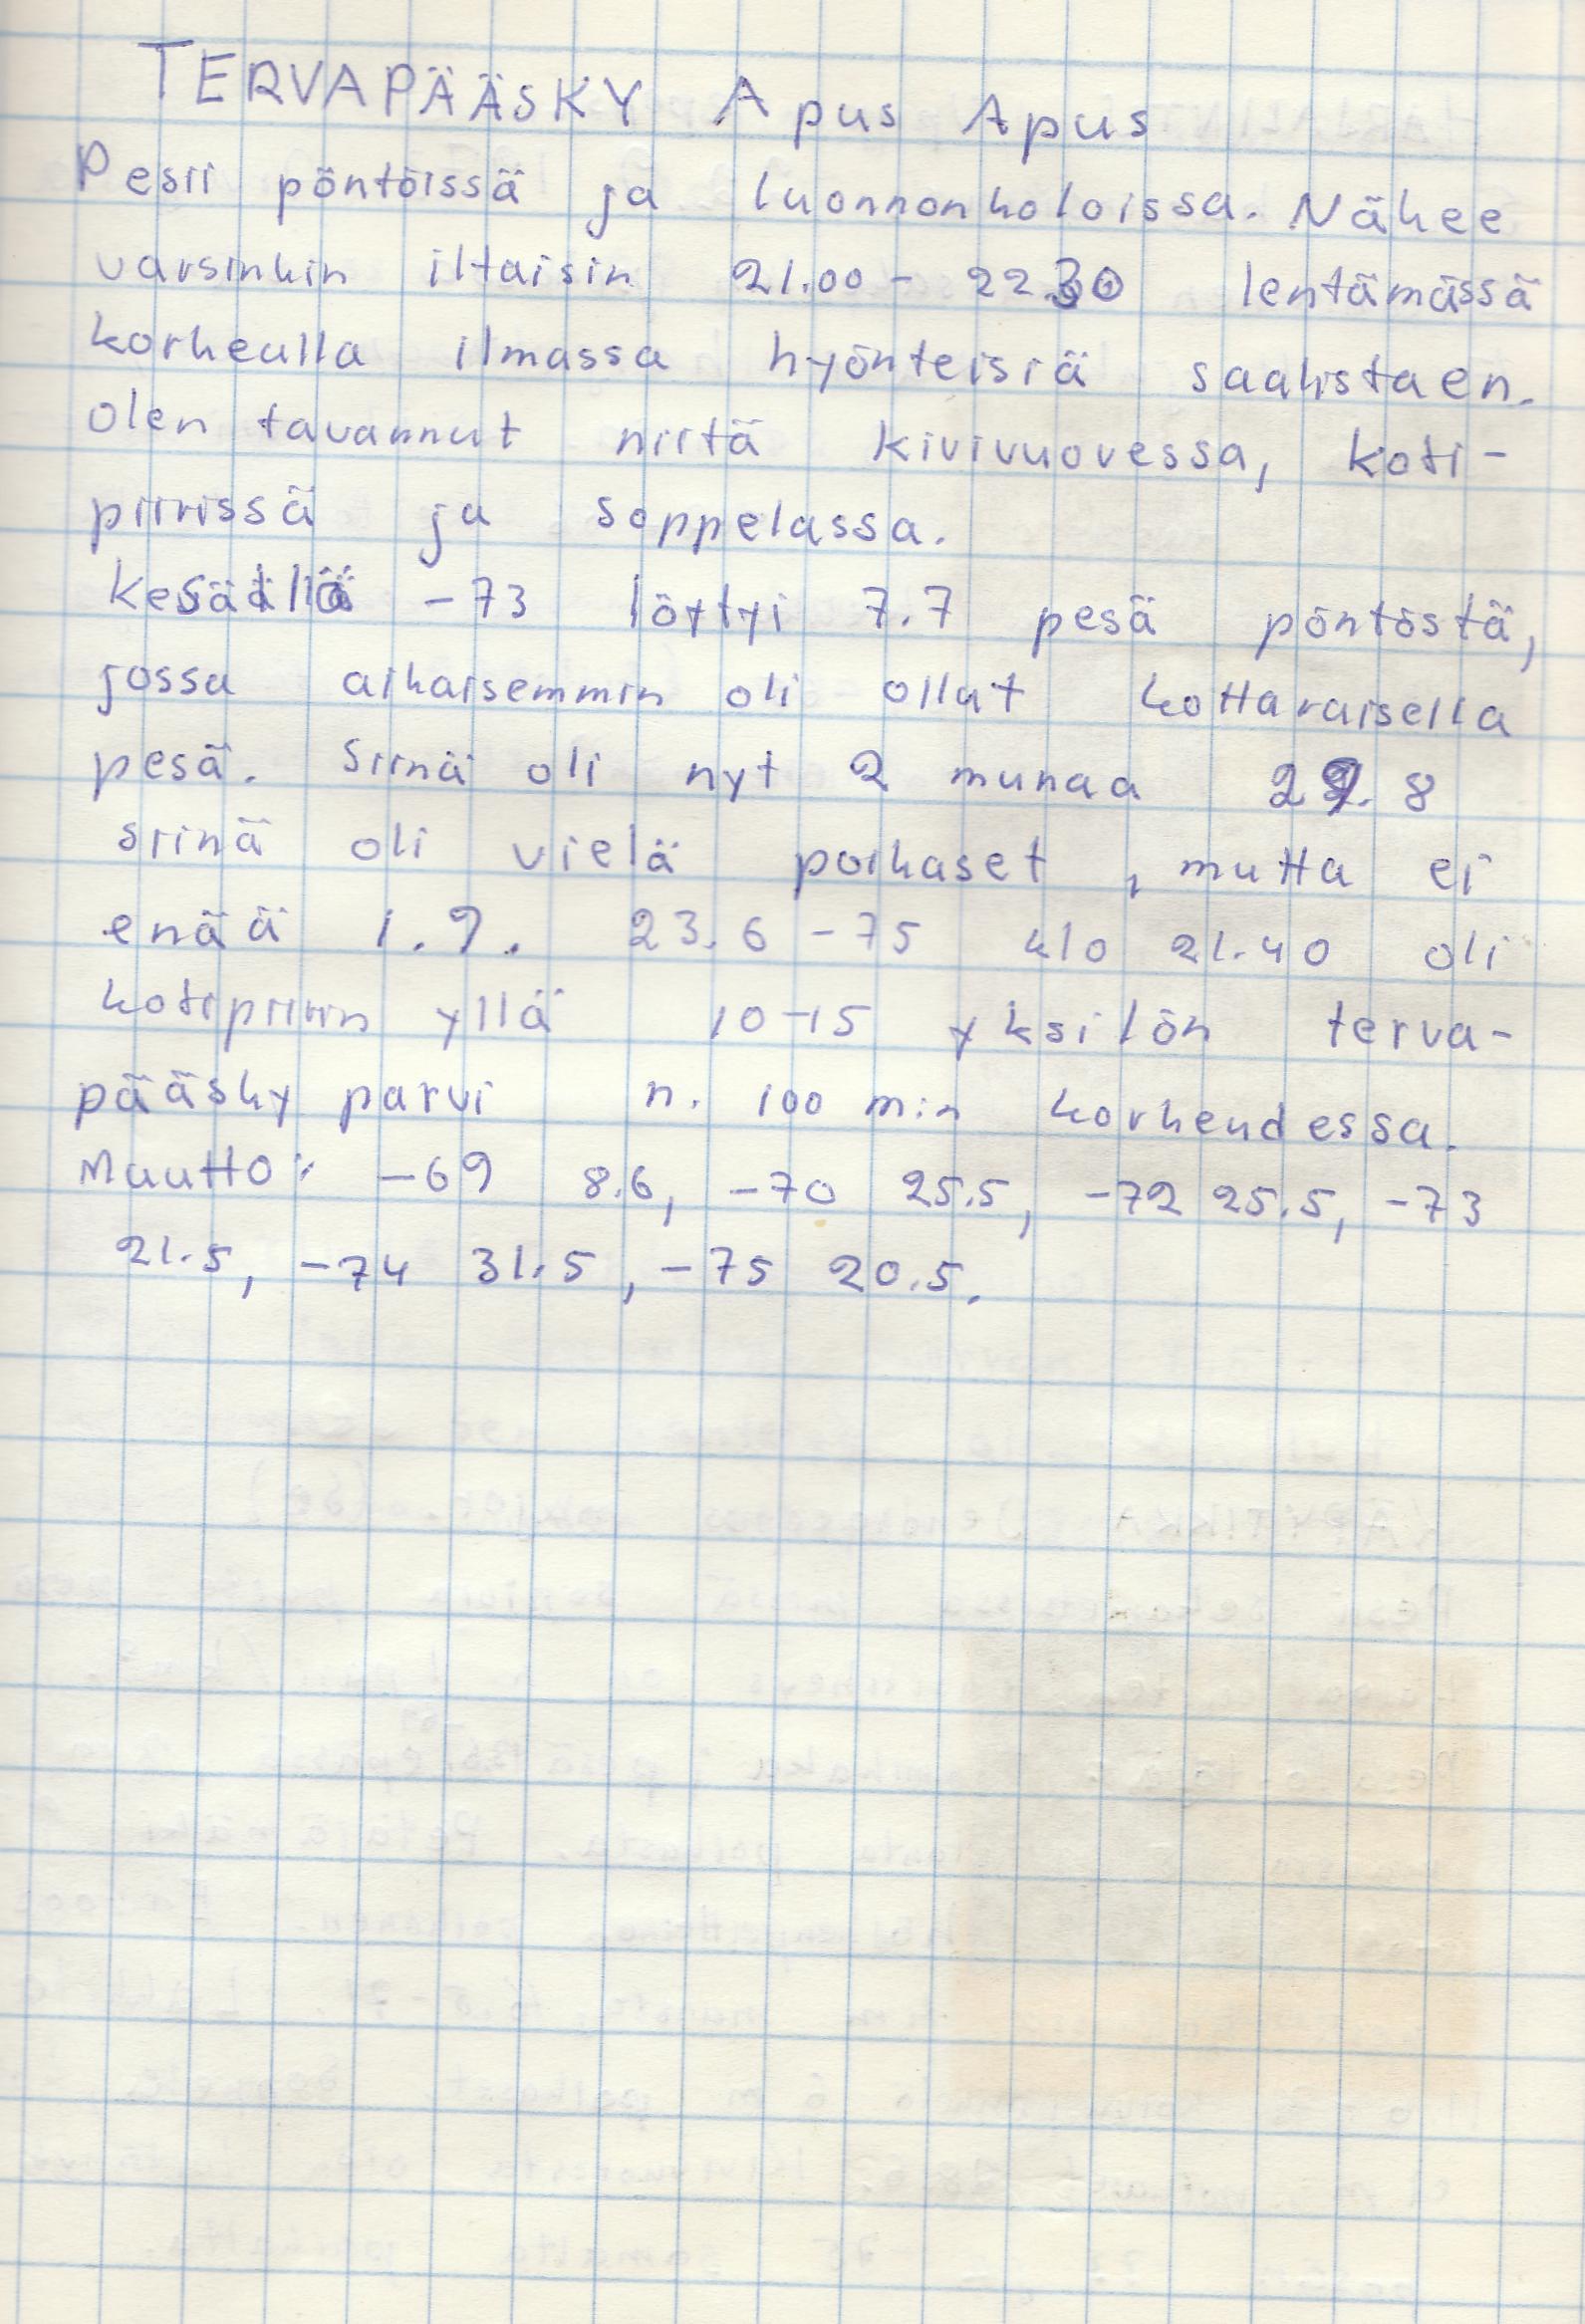 TERVAPÄÄSKY Apus Apus
Pesii pöntöissä ja luonnonkoloissa. Nähee
varsinkin iltaisin 21.00 - 22 30 lentämässä
korkealla ilmassa hyönteisiä saalistaen.
olen tavannut niitä kivivuoressa, koti-
piirissä ja soppelassa.
kesällä -73 löytyi 7.7 pesä pöntöstä,
jossa aikaisemmin oli ollut kottaraisella
pesä. Siinä oli nyt 2 munaa 8
siinä oli vielä poikaset, mutta ei
enää 1.9. 23.6 -75 klo 21.40 oli
kotipiirin yllä 10-15 yksilön terva-
pääsky parvi n. 100 min korkeudessa.
Muutto: -69 8.6, -70 25.5, -72 25.5, -73
21.5, -74 31.5, -75 20.5.